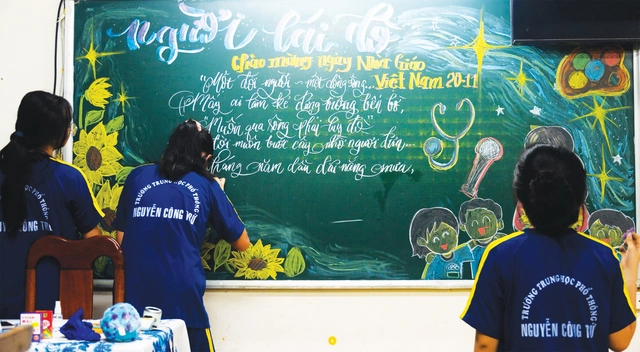 người lái đò
Chào mừng ngày Nhà Giáo
Việt Nam 20-11
"Một đời người - một dòng sông...
Mấy ai làm kẻ đứng trông bến bờ,
"Muốn qua sông phải lụy đò"
muôn bước cậy nhờ người đưa...
năm dầu dãi nắng mưa,
CÔNG TRỨ
TRƯỜNG TRUNG HỌC PHỔ THÔNG
NGUYỄN CÔNG TRỨ
TRƯỜNG TRUNG HỌC PHỔ THÔNG
NGUYỄN CÔNG TRỨ